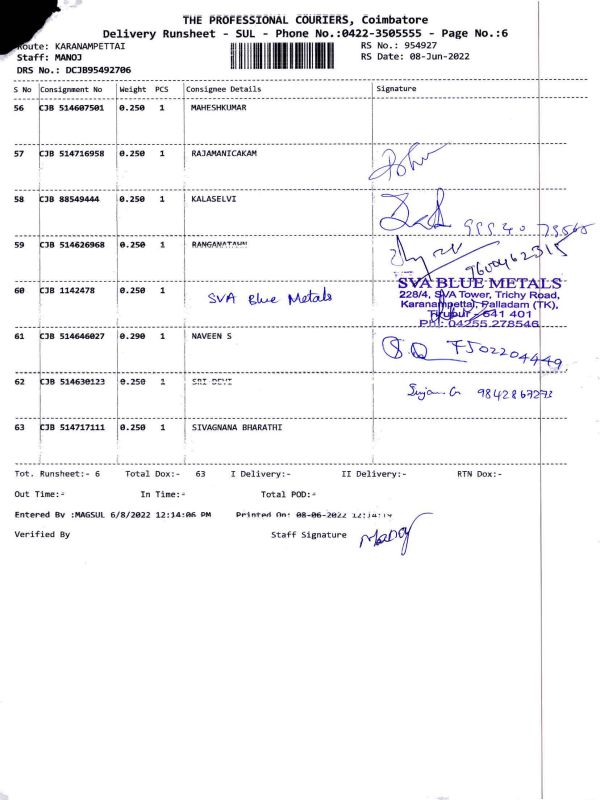 THE PROFESSIONAL COURIERS, Coimbatore
Delivery Runsheet - SUL - Phone No.:0422-3505555 - Page No.:6
Route: KARANAMPETTAI RS No.: 954927
Staff: MANOJ RS Date: 08-Jun-2022
DRS No.: DCJB95492706
S No Consignment No Weight PCS Consignee Details Signature
56 CJB 514607501 0.250 1 MAHESHKUMAR
57 CJB 514716958 0.250 1 RAJAMANICAKAM
58 CJB 88549444 0.250 1 KALASELVI
59 CJB 514626968 0.250 1
9600462315
60 CJB 1142478 0.250 1 SVA Blue Metals
SVA BLUE METALS
228/4, SVA Tower, Trichy Road,
Karanampettai, Palladam (TK),
Tirupur - 641 401
PH: 04255 278546
61 CJB 514646027 0.290 1 NAVEEN S
62 CJB 514630123 0.250 1 SRI DEVI 9842867273
63 CJB 514717111 0.250 1 SIVAGNANA BHARATHI
Tot. Runsheet:- 6 Total Dox:- 63 I Delivery:- II Delivery:- RTN Dox:-
Out Time:- In Time:- Total POD:-
Entered By :MAGSUL 6/8/2022 12:14:06 PM Printed On: 08-06-2022
Verified By Staff Signature Manoj